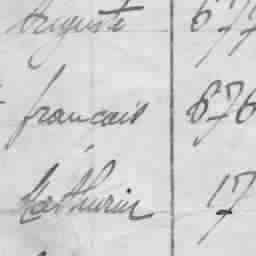 Auguste 677
francais 676
Mathurin 17